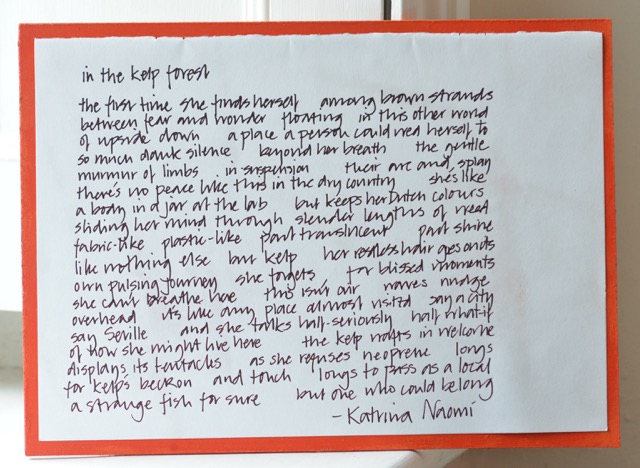 in the kelp forest
the first time she finds herself among brown strands
between fear and wonder floating in this other world
of upside down a place a person could wed herself to
so much dank silence beyond her breath the gentle
murmur of limbs in suspension their arc and splay
there's no peace like this in the dry country she's like
a body in a jar at the lab but keeps her Dutch colours
sliding her mind through slender lengths of weed
fabric-like plastic-like part translucent part shine
like nothing else but kelp her restless hair goes on its
own pulsing journey she forgets for blissed moments
she can't breathe here this isn't air waves nudge
overhead it's like any place almost visited say a city
say Seville and she talks half-seriously half what-if
of how she might live here the kelp wafts in welcome
displays its tentacles as she refuses neoprene longs
for kelps beckon and touch longs to pass as a local
a strange fish for sure but one who could belong
- Katrina Naomi